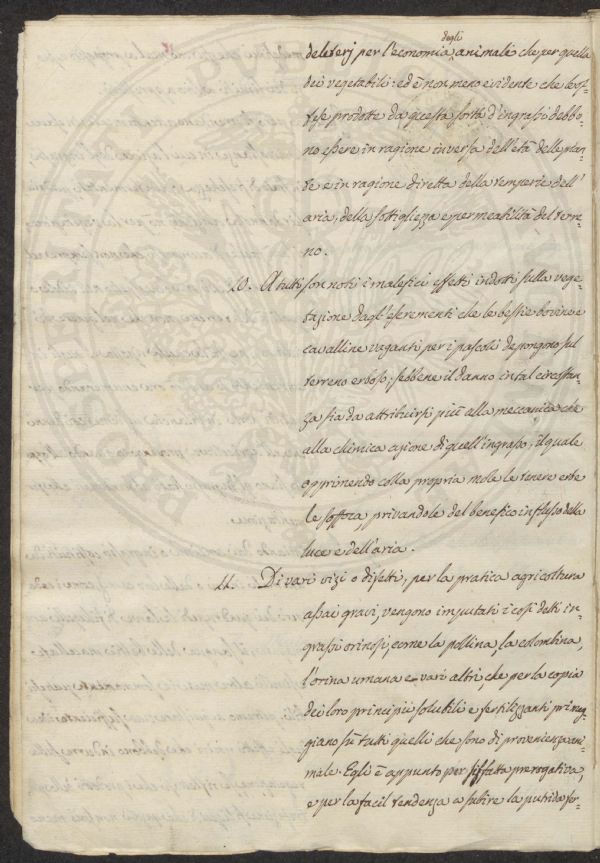 degli
deleterj per l'economia ^ animale che per quella
dei vegetabili: ed è non meno evidente che le of-
fese prodotte da questa sorta d'ingrassi debbo-
no essere in ragione inversa dell'età delle pian-
te e in ragione diretta della temperie dell'
aria, della sottigliezza e permeabilità del terre-
no.
10. A tutti son noti i malefici effetti indotti sulla vege-
tazione dagl'escrementi che le bestie bovine e
cavalline vaganti per i pascoli depongono sul
terreno erboso; sebbene il danno in tal circostan-
za sia da attribuirsi più alla meccanica che
alla chimica azione di quell'ingrasso, il quale
opprimendo colla propria mole le tenere erbe
le soffoca, privandole del benefico influsso della
luce e dell'aria.
11. Di vari vizi o difetti, per la pratica agricoltura
assai gravi, vengono imputati i così detti in-
grassi orinosi, come la pollina, la colombina,
l'orina umana e vari altri, che per la copia
dei loro principii solubili e fertilizzanti primeg-
giano su tutti quelli che sono di provenienza ani-
male. Egli è appunto per siffatta prerogativa,
e per la facil tendenza a subire la putrida fer-
PROSPERITATI PU